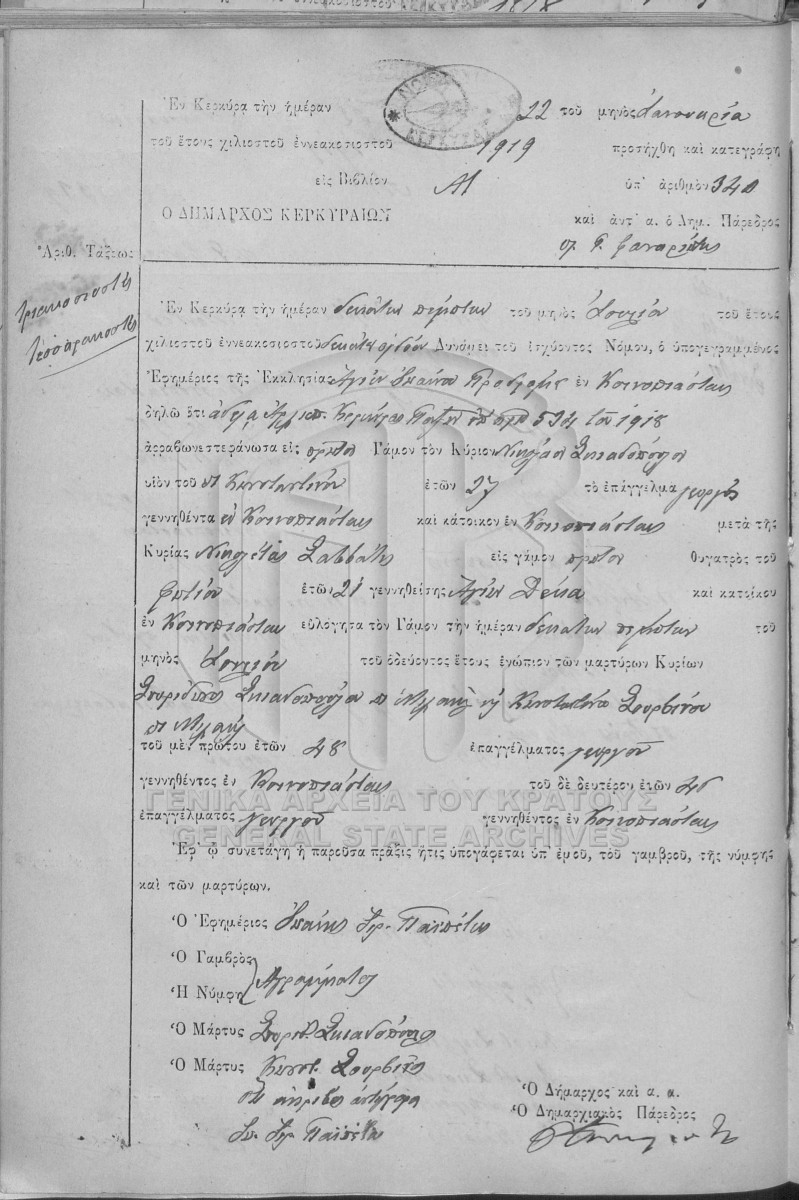 Ἐν Κερκύρᾳ τὴν ἡμέραν 22 τοῦ μηνὸς Ἰανουαρίου
τοῦ ἔτους χιλιοστοῦ ἐννεακοσιοστοῦ 1919 προσήχθη καὶ κατεγράφη
εἰς Βιβλίον Μ ὑπ' ἀριθμὸν 340
Ο ΔΗΜΑΡΧΟΣ ΚΕΡΚΥΡΑΙΩΝ καὶ ἀντ' α. ὁ Δημ. Πάρεδρος
Ἀριθ. Τάξεως
τριακοσιοστὸς
τεσσαρακοστὸς
Ἐν Κερκύρᾳ τὴν ἡμέραν δεκάτην πέμπτην τοῦ μηνὸς Ἰουλίου τοῦ ἔτους
χιλιοστοῦ ἐννεακοσιοστοῦ δεκάτου ὀγδόου Δυνάμει τοῦ ἰσχύοντος Νόμου, ὁ ὑπογεγραμμένος
Ἐφημέριος τῆς Ἐκκλησίας Ἁγίου Ἰωάννου Προδρόμου ἐν Κυνοπιάσταις
δηλῶ ὅτι ἀδείᾳ 534 τοῦ 1918
ἀρραβωνεστεφάνωσα εἰς πρῶτον Γάμον τὸν Κύριον Νικόλαον Σκιαδόπουλον
υἱὸν τοῦ Κωνσταντίνου ἐτῶν 27 τὸ ἐπάγγελμα γεωργὸς
γεννηθέντα ἐν Κυνοπιάσταις καὶ κάτοικον ἐν Κυνοπιάσταις μετὰ τῆς
Κυρίας Νικολέτας Σαββάνη εἰς γάμον πρῶτον θυγατρὸς τοῦ
Φωτίου ἐτῶν 21 γεννηθείσης Ἁγίων Δέκα καὶ κατοίκου
ἐν Κυνοπιάσταις εὐλόγησα τὸν Γάμον τὴν ἡμέραν δεκάτην πέμπτην τοῦ
μηνὸς Ἰουλίου τοῦ ὁδεύοντος ἔτους ἐνώπιον τῶν μαρτύρων Κυρίων
Σπυρίδωνος Σκιαδοπούλου Κωνσταντίνου Σουρβίνου
τοῦ μὲν πρώτου ἐτῶν 48 ἐπαγγέλματος γεωργοῦ
γεννηθέντος ἐν Κυνοπιάσταις τοῦ δὲ δευτέρου ἐτῶν
ἐπαγγέλματος γεωργοῦ γεννηθέντος ἐν Κυνοπιάσταις
Ἐφ' ᾧ συνετάγη ἡ παροῦσα πράξις ἥτις ὑπογάφεται ὑπ' ἐμοῦ, τοῦ γαμβροῦ, τῆς νύμφης
καὶ τῶν μαρτύρων.
Ὁ Ἐφημέριος Ἰωάννης Ἱερ. Παϊπέτης
Ὁ Γαμβρὸς
Ἀγράμματοι
Ἡ Νύμφη
Ὁ Μάρτυς Σπυρίδ. Σκιαδόπουλος
Ὁ Μάρτυς Κωνστ. Σουρβῖνος
ὅτι ἀκριβὲς ἀντίγραφον
Ἰω. Ἱερ. Παϊπέτης
Ὁ Δήμαρχος καὶ α. α.
Ὁ Δημαρχιακὸς Πάρεδρος
ΓΕΝΙΚΑ ΑΡΧΕΙΑ ΤΟΥ ΚΡΑΤΟΥΣ
GENERAL STATE ARCHIVES